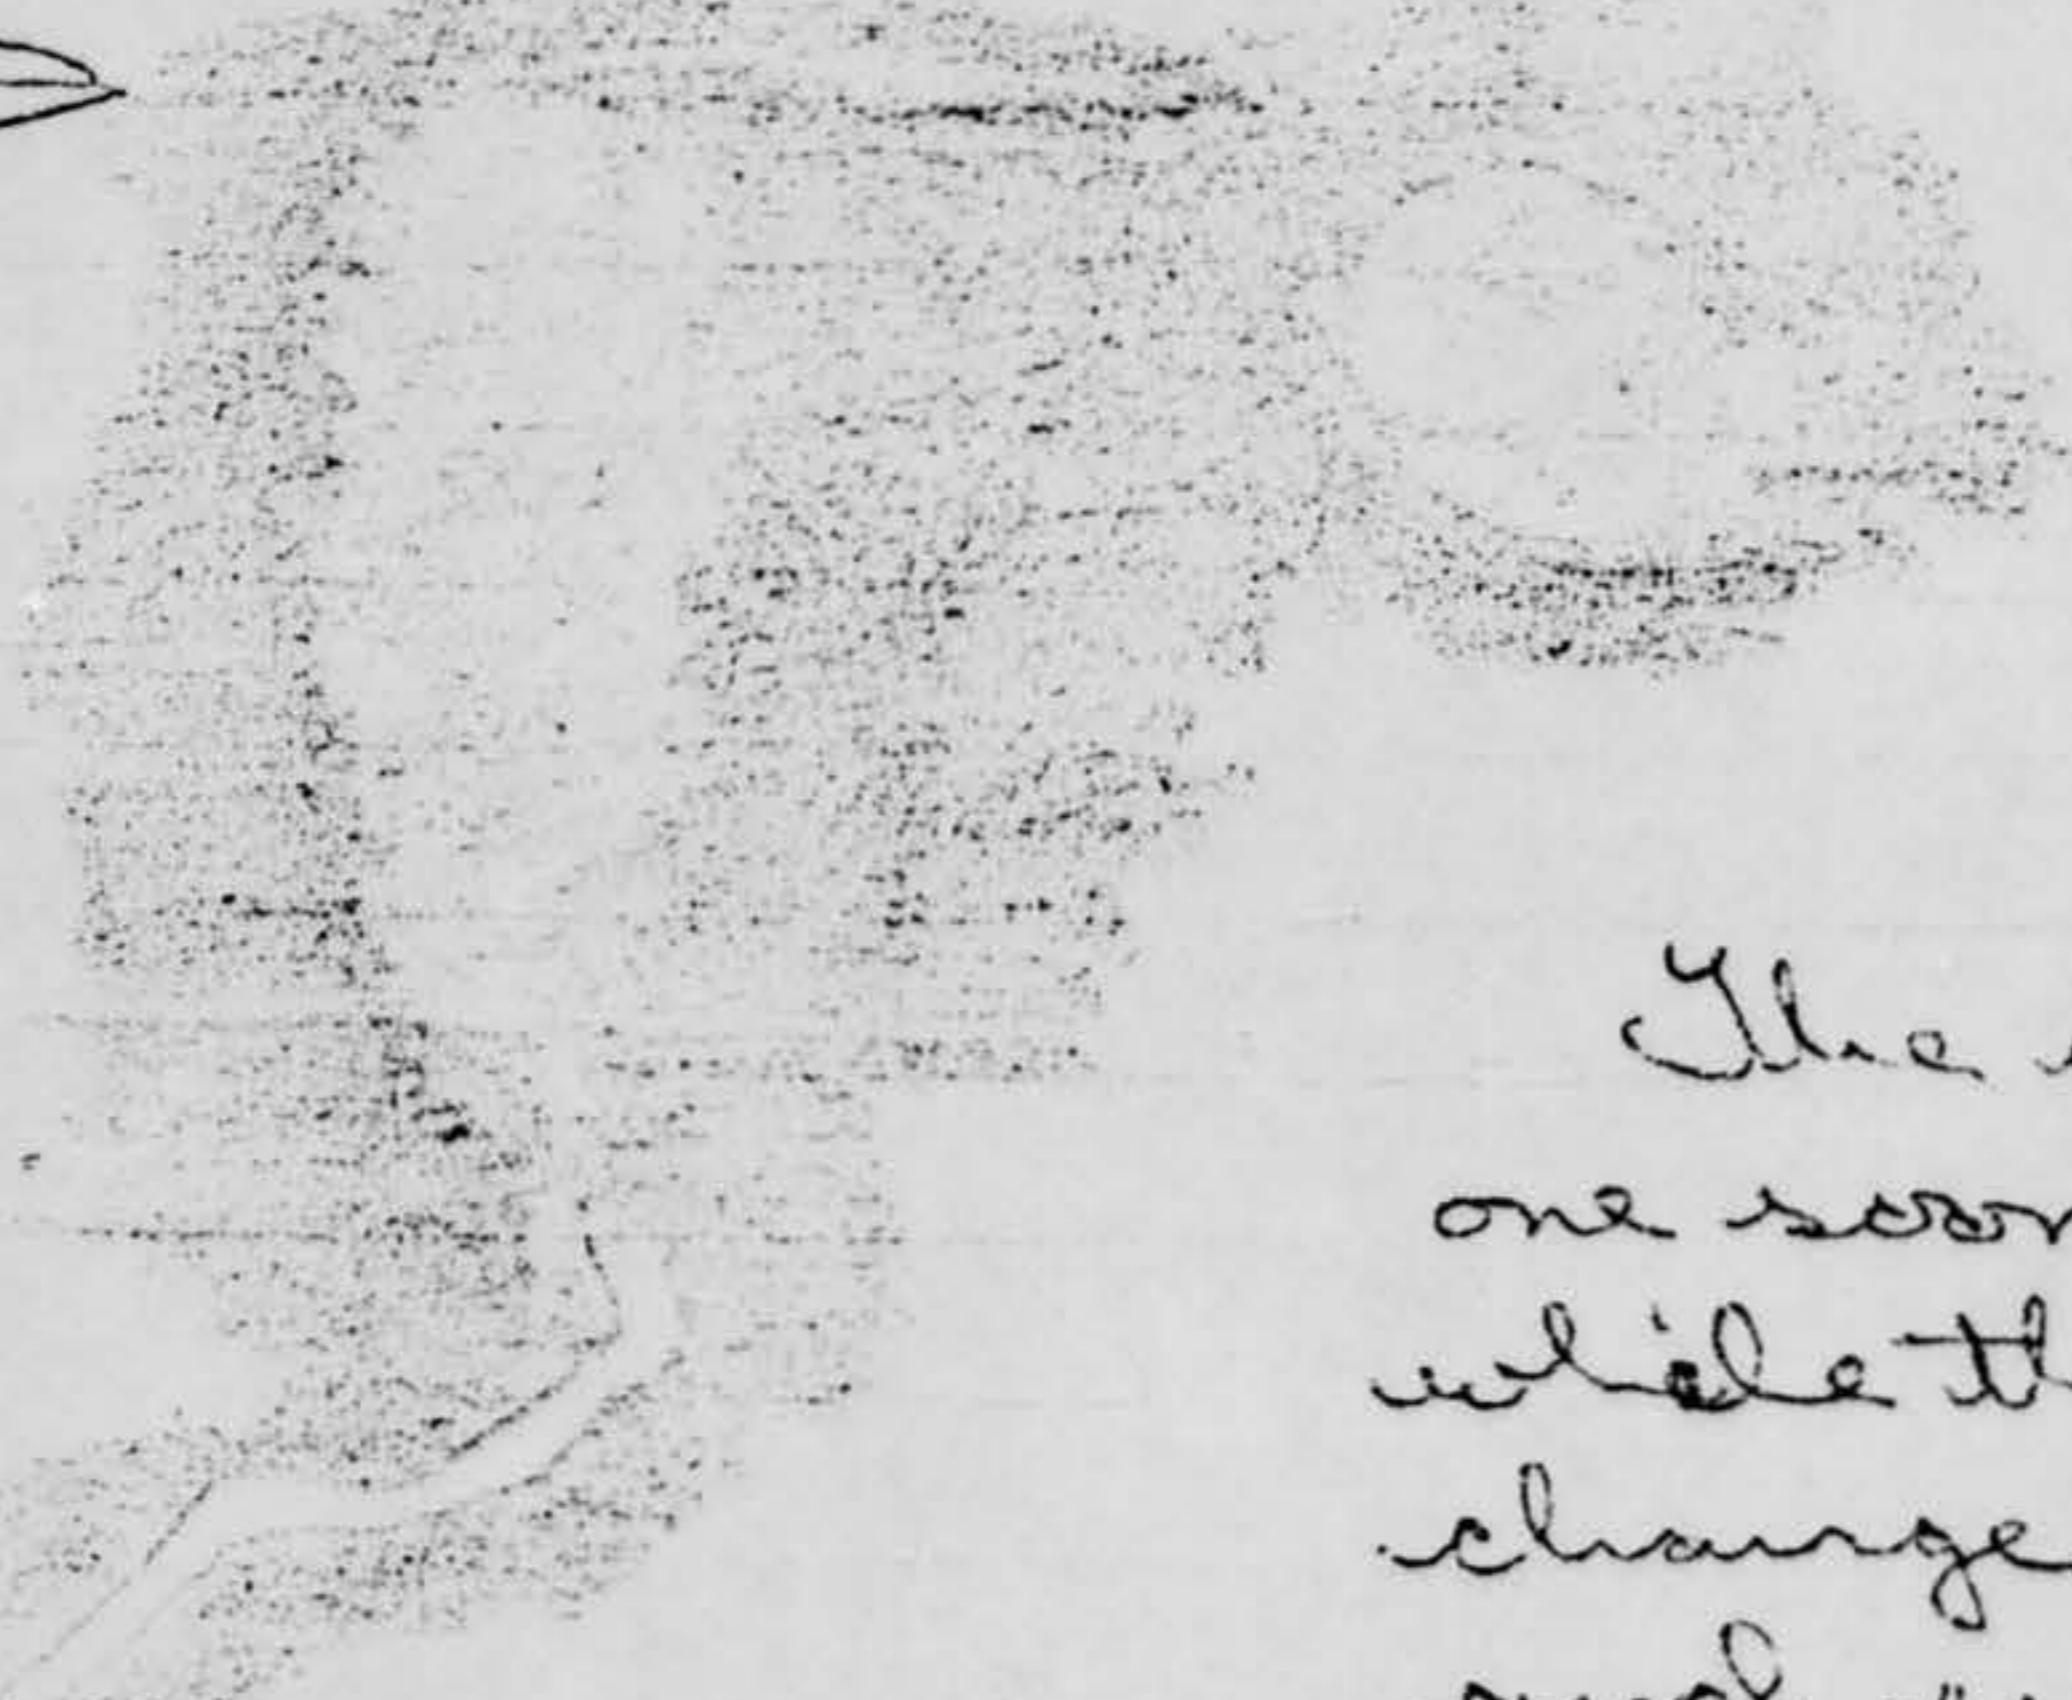 The
one soon
while th
change